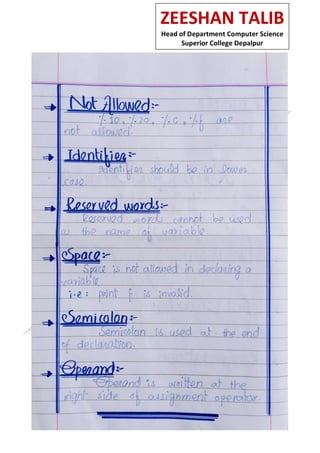 ZEESHAN TALIB
Head of Department Computer Science
Superior College Depalpur
Not Allowed:-
%10, %20, %c, %f are
not allowed.
Identifier:-
Identifier should be in lower
case.
Reserved words:-
Reserved words cannot be used
as the name of variable.
Space:-
Space is not allowed in declaring a
variable.
i.e: print f is invalid.
Semicolon:-
Semicolon is used at the end
of declaration.
Operand:-
Operand is written at the
right side of assignment operator.